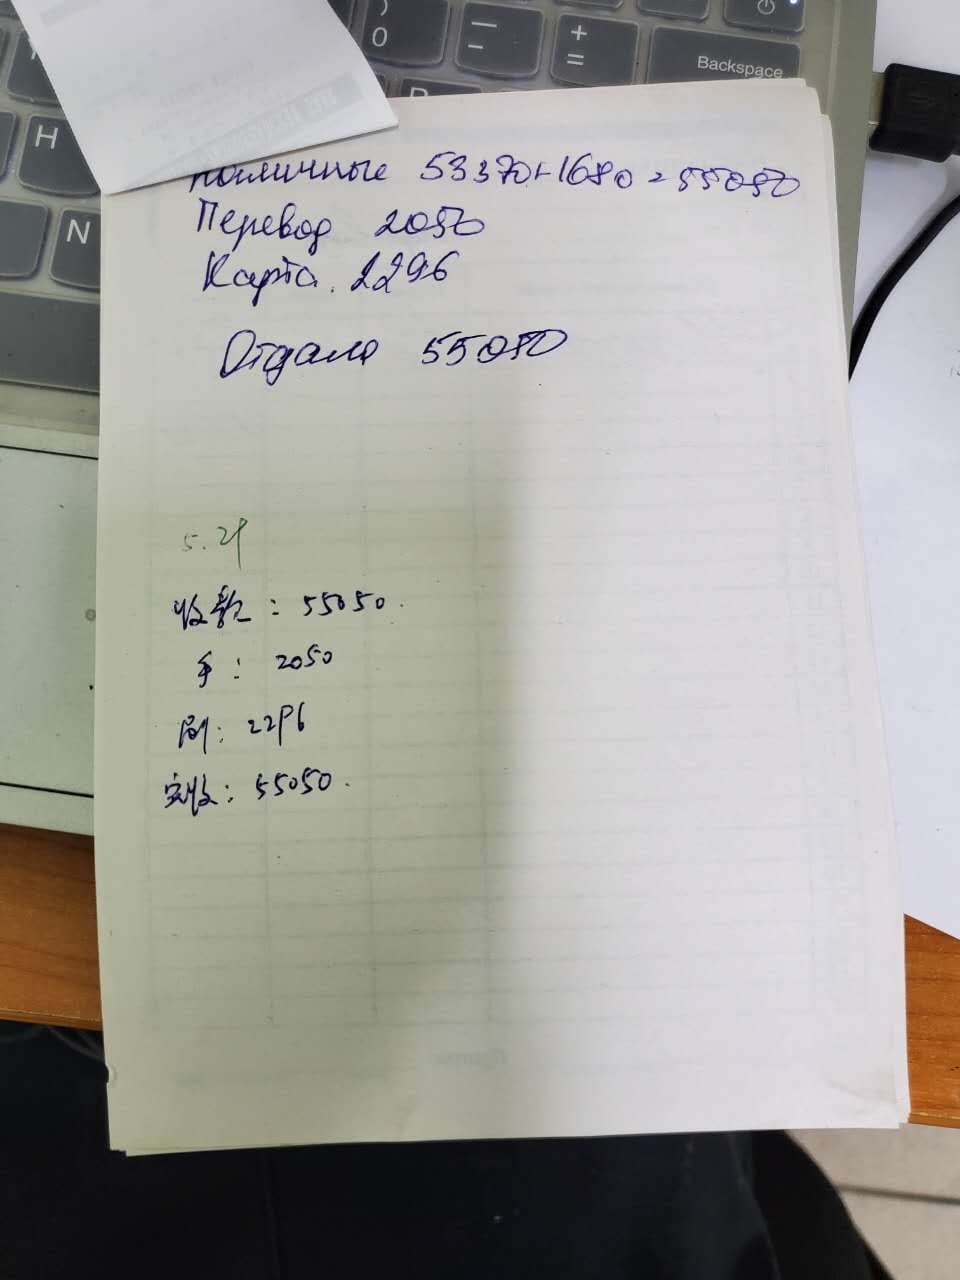 )
0
—
-
+
=
Backspace
H
N
наличные 53370+1680=55050
Перевод 2050
Карта. 2296
Отдала 55050
5.29
收款: 55050.
手: 2050
刷: 2296
实收: 55050.